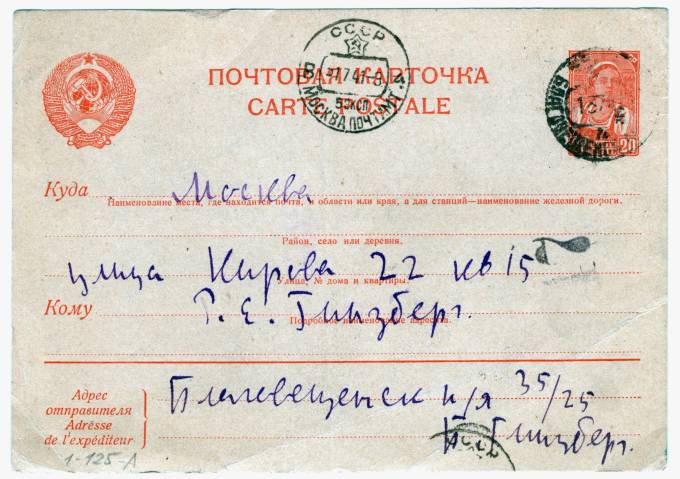 СССР
ПОЧТОВАЯ КАРТОЧКА
CARTE POSTALE
МОСКВА ПОЧТАМТ
20
Куда Москва
Наименование места, где находится почта, и области или края, а для станций—наименование железной дороги.
Район, село или деревня.
улица Кирова 22 кв 15
Улица, № дома и квартиры.
Кому Р. Е. Гинзберг.
Подробное наименование адресата.
Адрес отправителя
Adresse de l'expéditeur
Благовещенск п/я 35/25
Гинзберг.
СССР
1-125-А